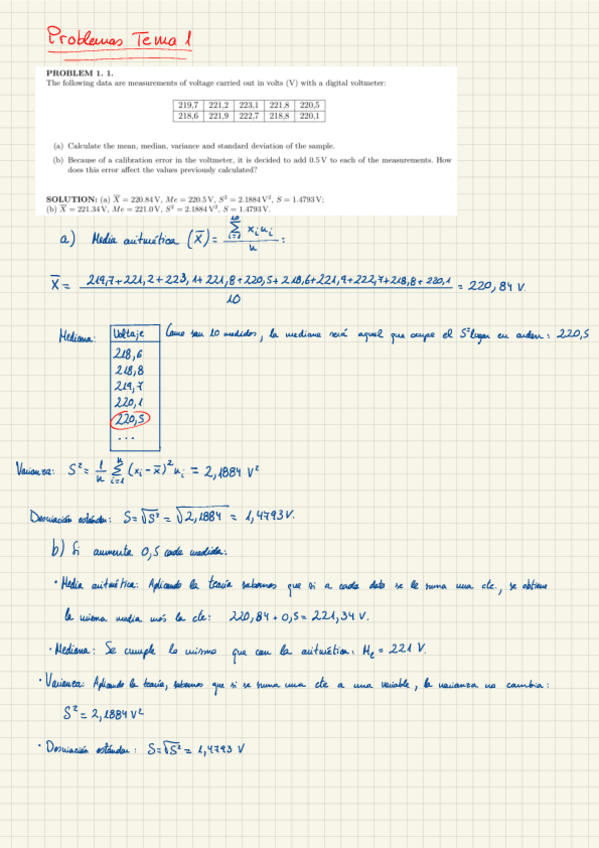 Problemas Tema 1
PROBLEM 1. 1.
The following data are measurements of voltage carried out in volts (V) with a digital voltmeter:
219,7 221,2 223,1 221,8 220,5
218,6 221,9 222,7 218,8 220,1
(a) Calculate the mean, median, variance and standard deviation of the sample.
(b) Because of a calibration error in the voltmeter, it is decided to add 0.5 V to each of the measurements. How
does this error affect the values previously calculated?
SOLUTION: (a) X̅ = 220.84 V, Me = 220.5 V, S² = 2.1884 V², S = 1.4793 V;
(b) X̅ = 221.34 V, Me = 221.0 V, S² = 2.1884 V², S = 1.4793 V.
a) Media aritmética (X̅) = Σ(i=1, 10) xi ni / n :
X̅ = 219,7+221,2+223,1+221,8+220,5+218,6+221,9+222,7+218,8+220,1 / 10 = 220,84 V.
Mediana: Voltaje Como son 10 medidas, la mediana será aquel que ocupe el 5º lugar en orden: 220,5
218,6
218,8
219,7
220,1
220,5
...
Varianza: S² = 1/n Σ(i=1, n) (xi - x̅)² ni = 2,1884 V²
Desviación estándar: S = √S² = √2,1884 = 1,4793 V.
b) Si aumenta 0,5 cada medida:
· Media aritmética: Aplicando la teoría sabemos que si a cada dato se le suma una cte, se obtiene
la misma media más la cte: 220,84 + 0,5 = 221,34 V.
· Mediana: Se cumple lo mismo que con la aritmética: Me = 221 V.
· Varianza: Aplicando la teoría, sabemos que si se suma una cte a una variable, la varianza no cambia:
S² = 2,1884 V²
· Desviación estándar: S = √S² = 1,4793 V